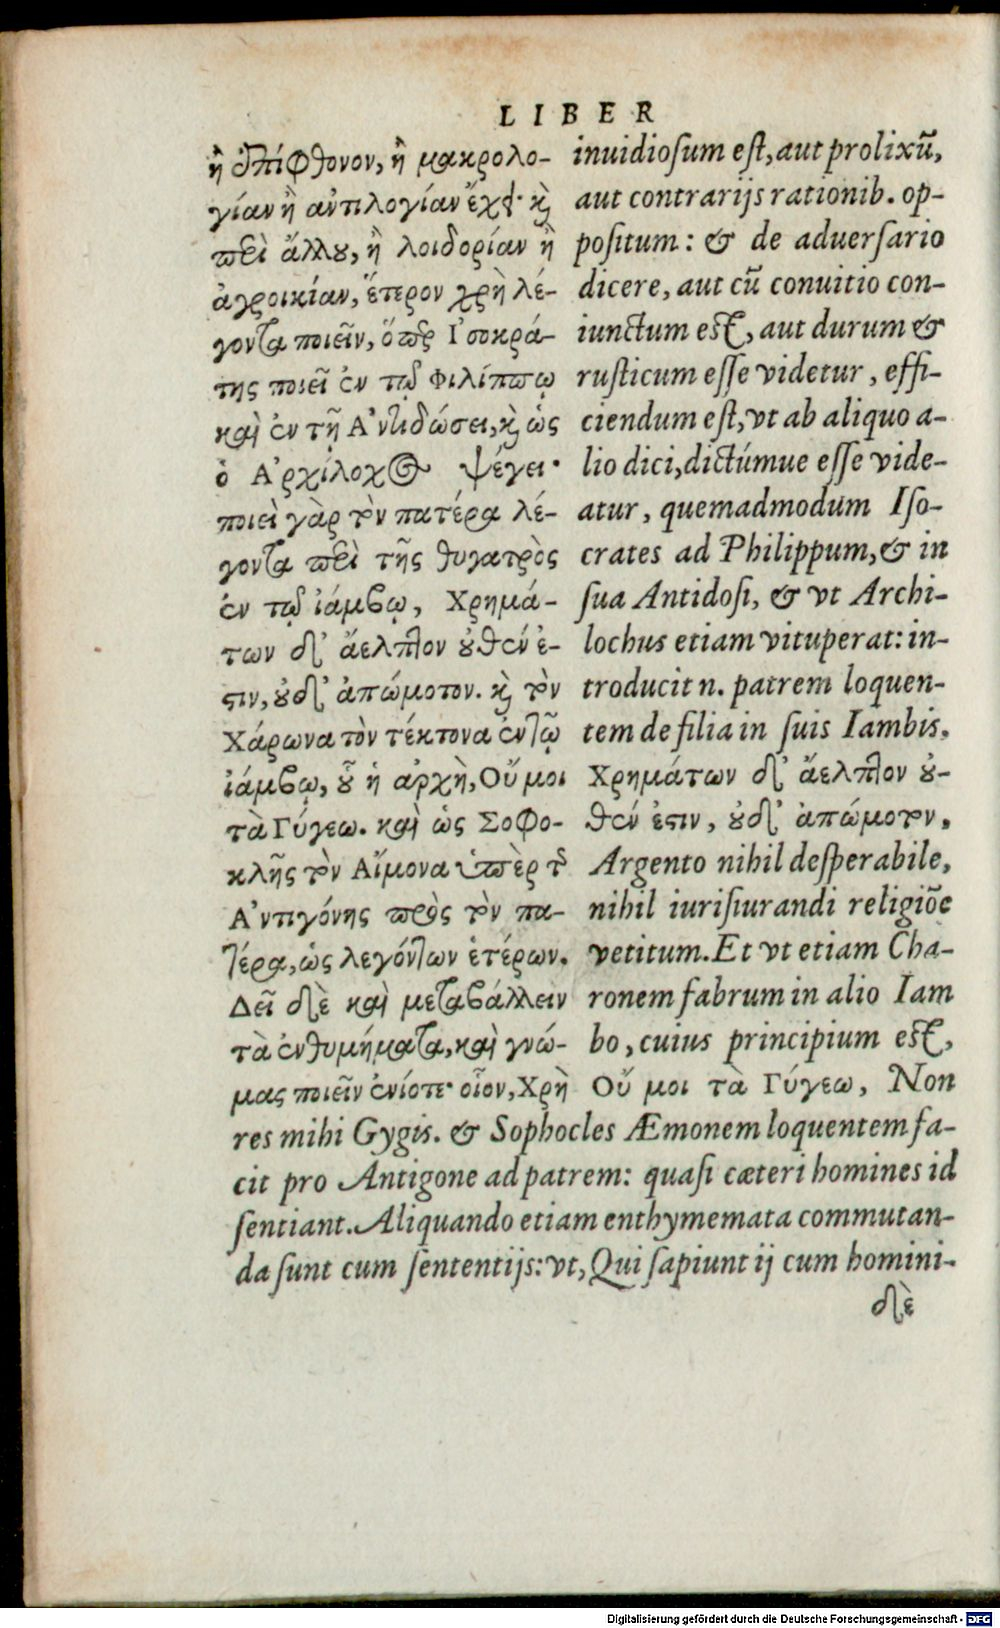 LIBER
ἢ ἐπίφθονον, ἢ μακρολο-
γίαν ἢ ἀντιλογίαν ἔχει· καὶ
περὶ ἄλλου, ἢ λοιδορίαν ἢ
ἀγροικίαν, ἕτερον χρὴ λέ-
γοντα ποιεῖν, ὅπερ Ἰσοκρά-
της ποιεῖ ἐν τῷ Φιλίππῳ
καὶ ἐν τῇ Ἀντιδώσει, καὶ ὡς
ὁ Ἀρχίλοχος ψέγει·
ποιεὶ γὰρ τὸν πατέρα λέ-
γοντα περὶ τῆς θυγατρὸς
ἐν τῷ ἰάμβῳ, Χρημά-
των δ' ἄελπτον οὐθέν ἐ-
στιν, οὐδ' ἀπώμοτον. καὶ τὸν
Χάρωνα τὸν τέκτονα ἐν τῷ
ἰάμβῳ, οὗ ἡ ἀρχὴ, Οὔ μοι
τὰ Γύγεω. καὶ ὡς Σοφο-
κλῆς τὸν Αἵμονα ὑπὲρ τῆς
Ἀντιγόνης πρὸς τὸν πα-
τέρα, ὡς λεγόντων ἑτέρων.
Δεῖ δὲ καὶ μεταβάλλειν
τὰ ἐνθυμήματα, καὶ γνώ-
μας ποιεῖν ἐνίοτε· οἷον, Χρὴ
inuidioſum eſt, aut prolixũ,
aut contrarijs rationib. op-
poſitum: & de aduerſario
dicere, aut cũ conuitio con-
iunctum eſt, aut durum &
ruſticum eſſe videtur, effi-
ciendum eſt, vt ab aliquo a-
lio dici, dictúmue eſſe vide-
atur, quemadmodum Iſo-
crates ad Philippum, & in
ſua Antidoſi, & vt Archi-
lochus etiam vituperat: in-
troducit n. patrem loquen-
tem de filia in ſuis Iambis.
Χρημάτων δ' ἄελπτον οὐ-
θέν ἐστιν, οὐδ' ἀπώμοτον,
Argento nihil deſperabile,
nihil iuriſiurandi religiõe
vetitum. Et vt etiam Cha-
ronem fabrum in alio Iam
bo, cuius principium eſt,
Οὔ μοι τὰ Γύγεω, Non
res mihi Gygis. & Sophocles Æmonem loquentem fa-
cit pro Antigone ad patrem: quaſi cæteri homines id
ſentiant. Aliquando etiam enthymemata commutan-
da ſunt cum ſententijs: vt, Qui ſapiunt ij cum homini-
δὲ
Digitalisierung gefördert durch die Deutsche Forschungsgemeinschaft - DFG